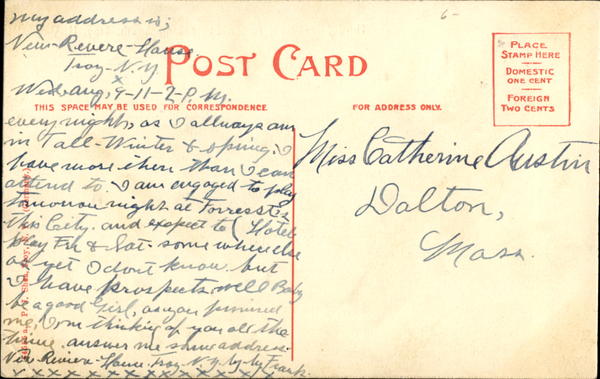 my address is;
New-Revere-House.
Troy-N.Y.
x
Wed. Aug, 9-11-2-P.M.
POST CARD
PLACE
STAMP HERE
DOMESTIC
ONE CENT
FOREIGN
TWO CENTS
THIS SPACE MAY BE USED FOR CORRESPONDENCE.
FOR ADDRESS ONLY.
every night, as I allways am
in Fall-Winter & Spring. I
have more then than I can
attend to. I am engaged to play
tomorrow night at
this City. and expect to (Hotel
play Fri & Sat. some where else
as yet I dont know. but
I have prospects, well Baby
be a good Girl, as you promised
me, I'm thinking of you all the
time. answer me same address.
New Reviere-House. Troy-N.Y. Frank.
x x x x x x x x x x x x x x x x
Miss Catherine Austin
Dalton,
Mass.